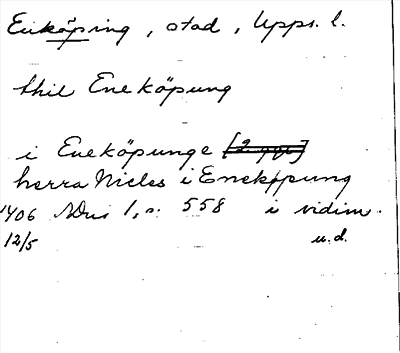 Enköping, stad, Upps. l.
thil Eneköpung
i Eneköpunge [2 ggr]
herra Nicles i Enekøpung
1406 NDus 1, s. 558 i vidim.
12/5 u.d.